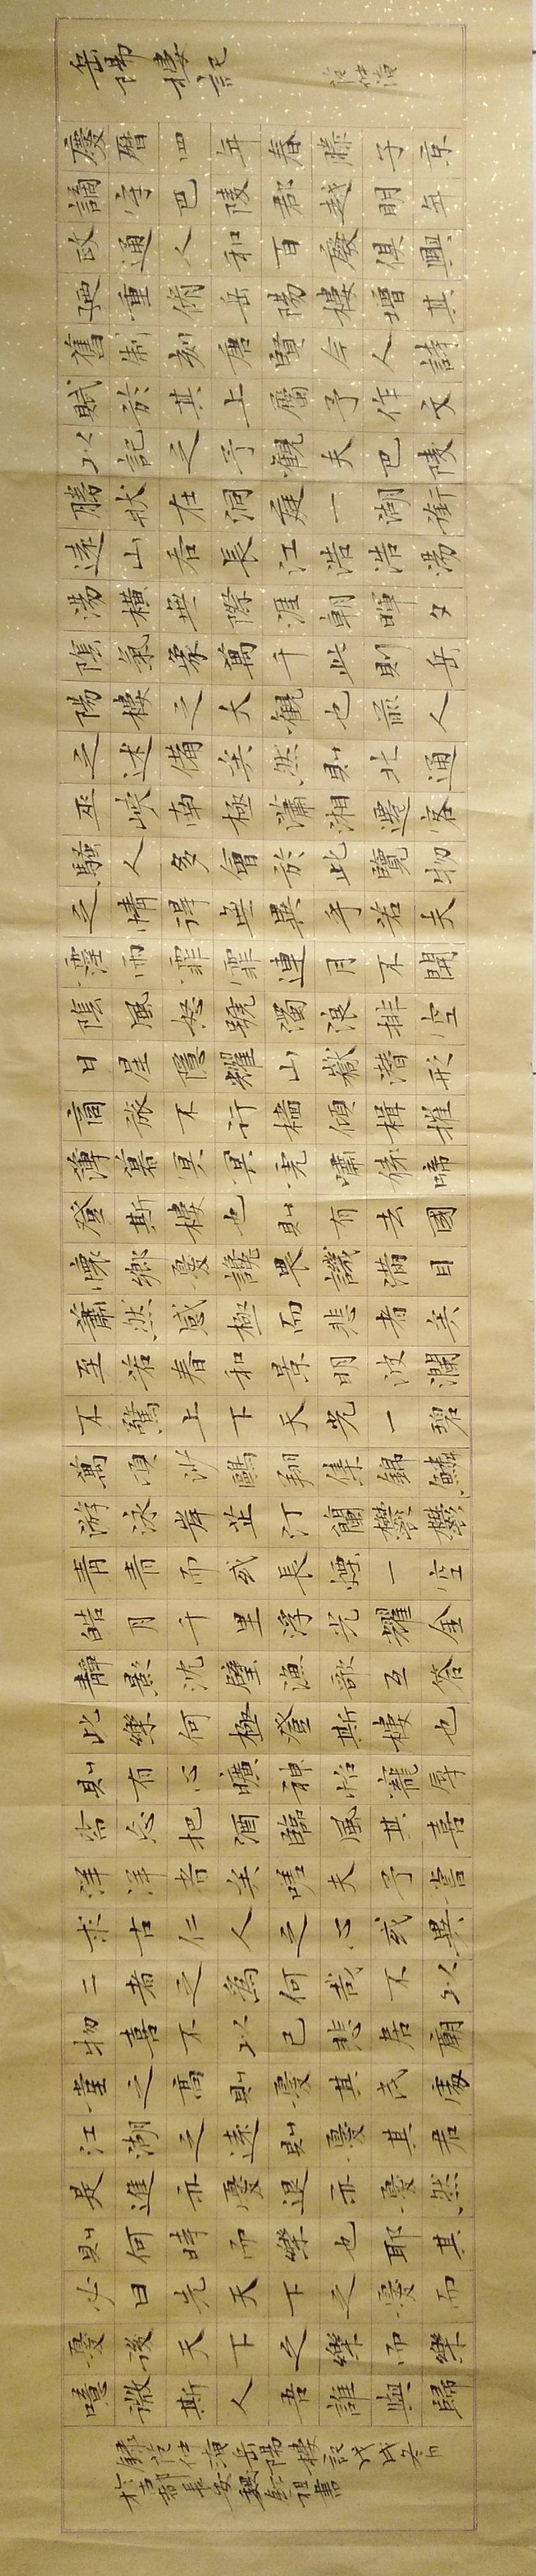 岳陽樓記
范仲淹
慶曆四年春滕子京
謫守巴陵郡越明年
政通人和百廢俱興
廼重修岳陽樓增其
舊制刻唐賢今人詩
賦於其上屬予作文
以記之予觀夫巴陵
勝狀在洞庭一湖銜
遠山吞長江浩浩湯
湯橫無際涯朝暉夕
陰氣象萬千此則岳
陽樓之大觀也前人
之述備矣然則北通
巫峽南極瀟湘遷客
騷人多會於此覽物
之情得無異乎若夫
霪雨霏霏連月不開
陰風怒號濁浪排空
日星隱耀山嶽潛形
商旅不行檣傾楫摧
薄暮冥冥虎嘯猿啼
登斯樓也則有去國
懷鄉憂讒畏譏滿目
蕭然感極而悲者矣
至若春和景明波瀾
不驚上下天光一碧
萬頃沙鷗翔集錦鱗
游泳岸芷汀蘭鬱鬱
青青而或長煙一空
皓月千里浮光耀金
靜影沈璧漁歌互答
此樂何極澄斯樓也
則有心曠神怡寵辱
皆忘把酒臨風其喜
洋洋者矣嗟夫予嘗
求古仁人之心或異
二者之為何哉不以
物喜不以己悲居廟
堂之高則憂其民處
江湖之遠則憂其君
是進亦憂退亦憂然
則何時而樂也耶其
必曰先天下之憂而
憂後天下之樂而樂
噫微斯人吾誰與歸
錄范仲淹岳陽樓記戊戌冬月
於古都長安魏祖書